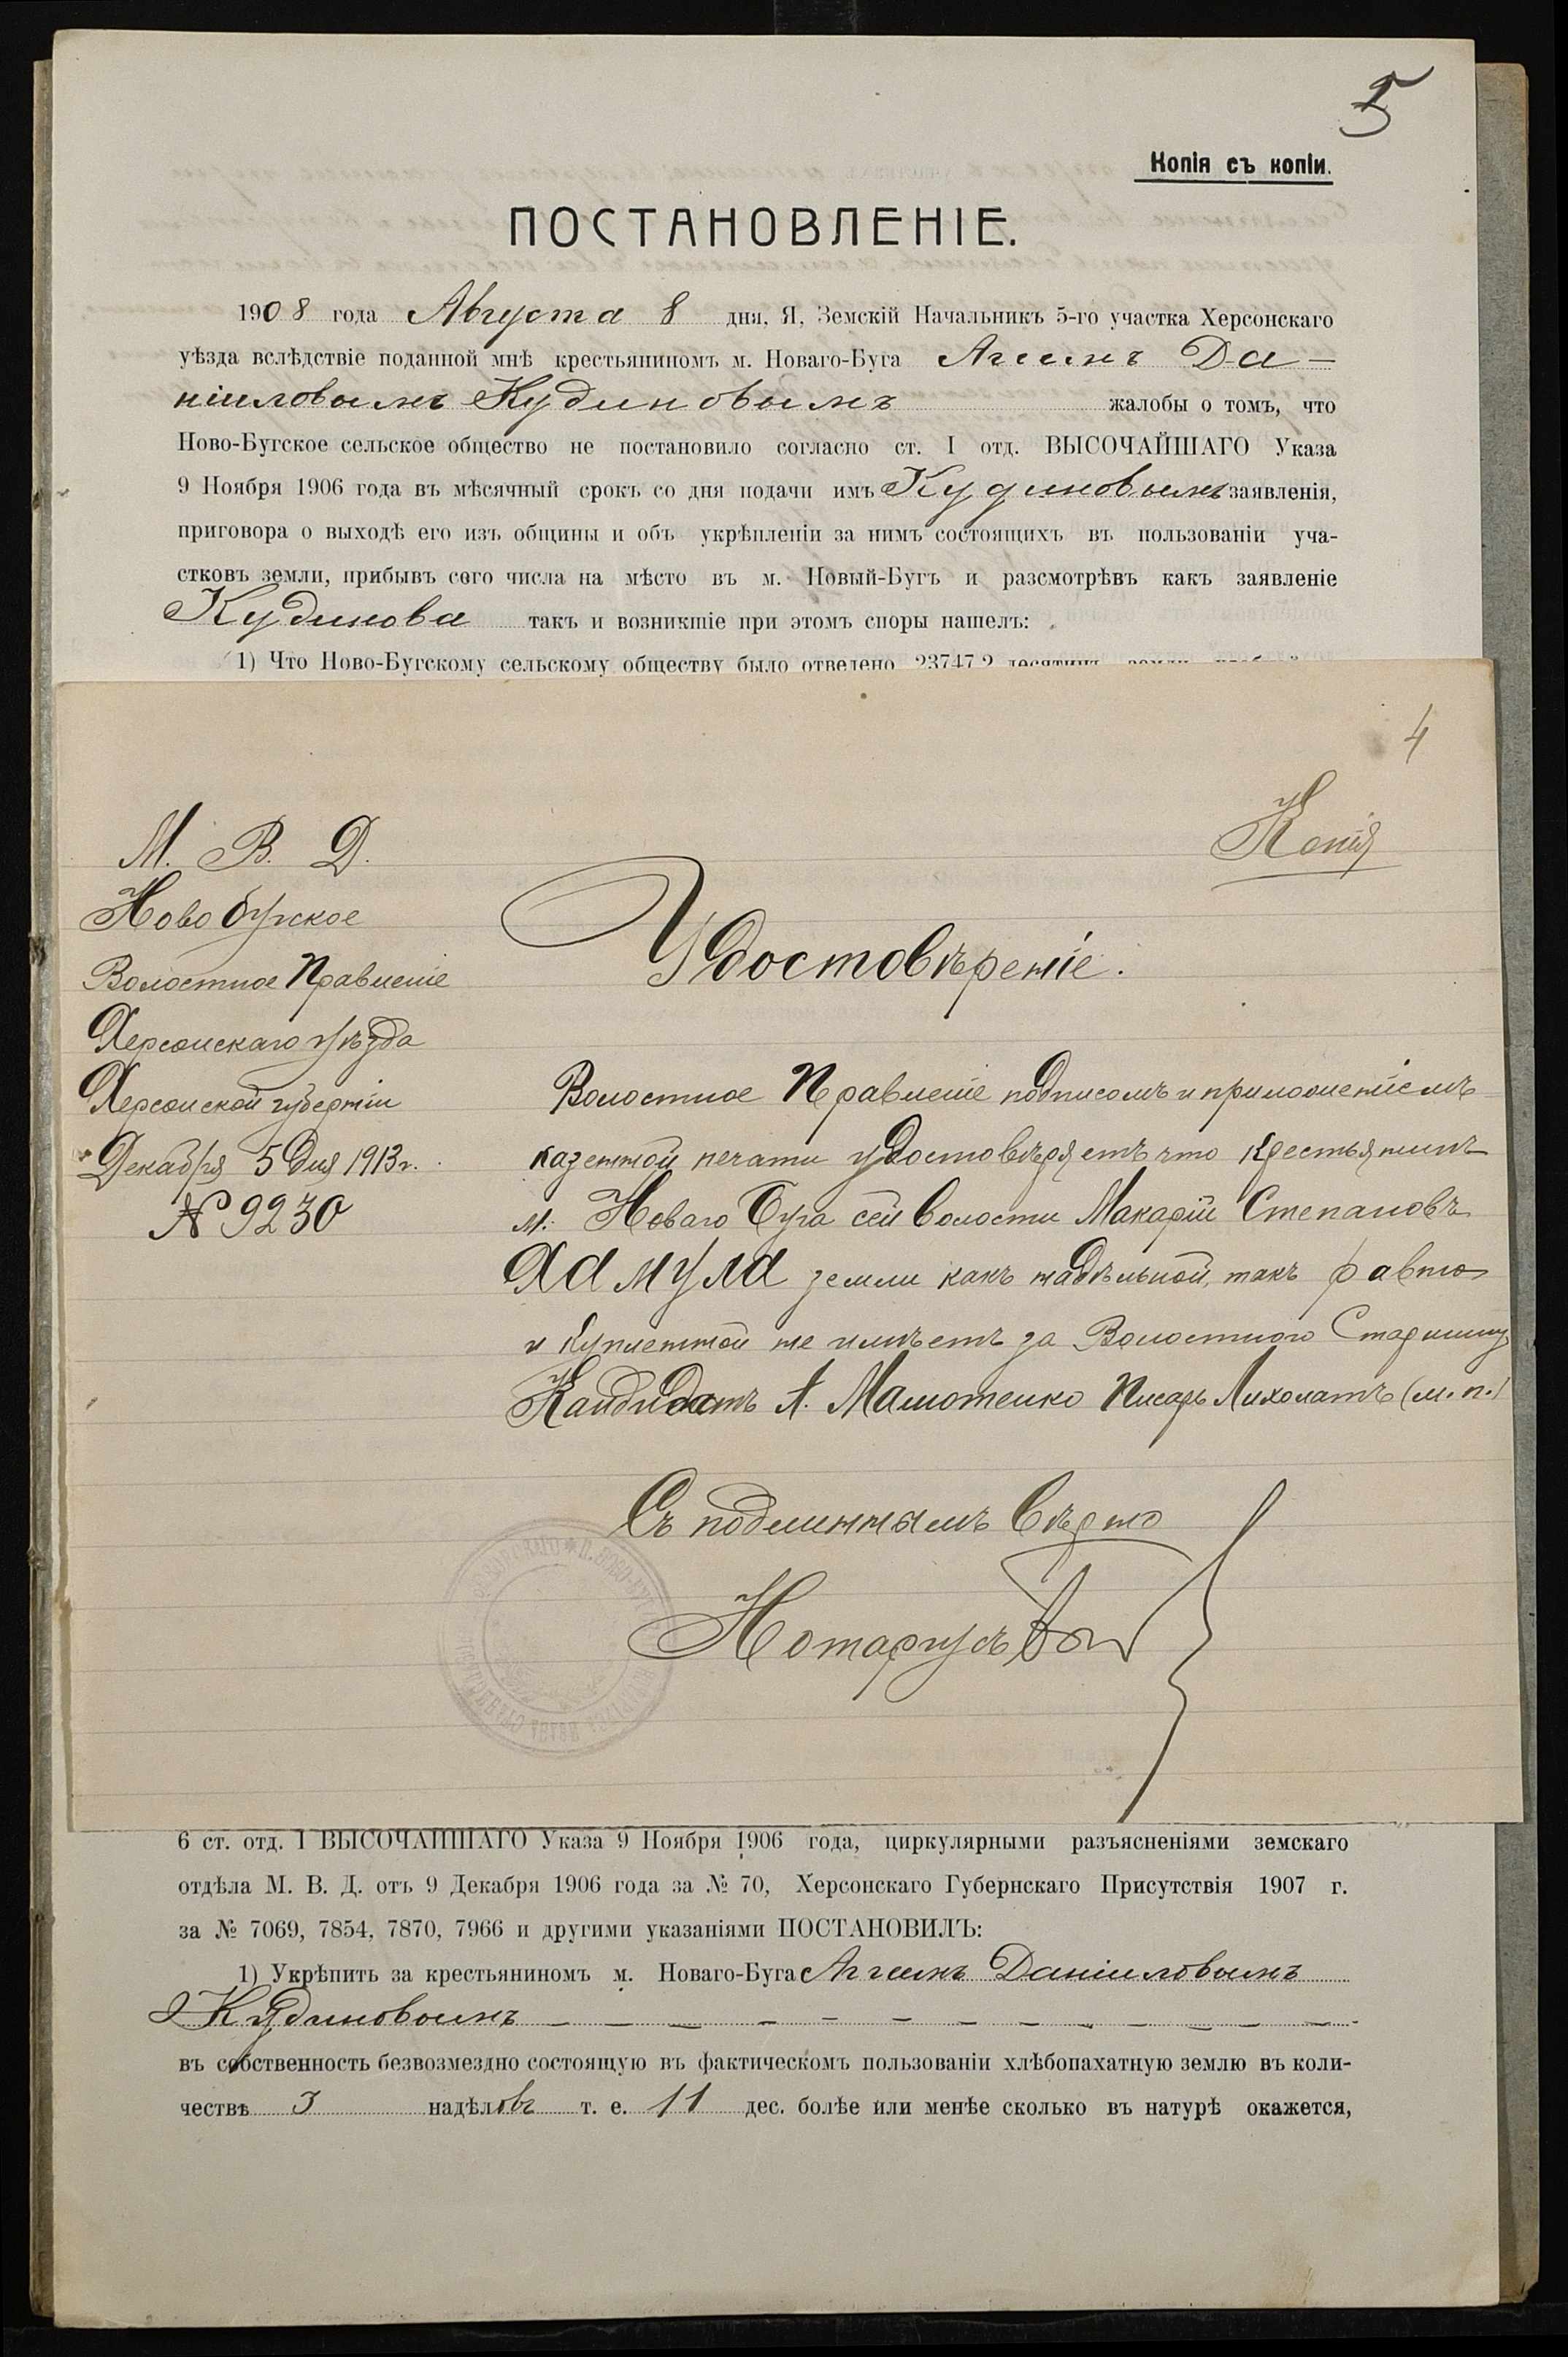 5
Копія съ копіи.
ПОСТАНОВЛЕНІЕ.
1908 года Августа 8 дня, Я, Земскій Начальникъ 5-го участка Херсонскаго
уѣзда вслѣдствіе поданной мнѣ крестьяниномъ м. Новаго-Буга Да-
ніиловымъ Кудиновымъ жалобы о томъ, что
Ново-Бугское сельское общество не постановило согласно ст. I отд. ВЫСОЧАЙШАГО Указа
9 Ноября 1906 года въ мѣсячный срокъ со дня подачи имъ Кудиновымъ заявленія,
приговора о выходѣ его изъ общины и объ укрѣпленіи за нимъ состоящихъ въ пользованіи уча-
стковъ земли, прибывъ сего числа на мѣсто въ м. Новый-Бугъ и разсмотрѣвъ какъ заявленіе
Кудинова такъ и возникшіе при этомъ споры нашелъ:
1) Что Ново-Бугскому сельскому обществу было отведено 23747,2 десятинъ земли
4
Копія
М. В. Д.
Новобугское
Волостное Правленіе
Херсонскаго уѣзда
Херсонской губерніи
Декабря 5 дня 1913 г.
№ 9230
Удостовѣреніе.
Волостное Правленіе подписомъ и приложеніемъ
казенной печати удостовѣряетъ что крестьянинъ
м. Новаго Буга сей волости Макарій Степановъ
Хамула земли какъ надѣльной, такъ равно
и купленной не имѣетъ за Волостного Старшину
Кандидатъ А. Мамотенко Писарь Лихолатъ (м. п.)
Съ подлиннымъ вѣрно
Нотаріусъ
6 ст. отд. I ВЫСОЧАЙШАГО Указа 9 Ноября 1906 года, циркулярными разъясненіями земскаго
отдѣла М. В. Д. отъ 9 Декабря 1906 года за № 70, Херсонскаго Губернскаго Присутствія 1907 г.
за № 7069, 7854, 7870, 7966 и другими указаніями ПОСТАНОВИЛЪ:
1) Укрѣпить за крестьяниномъ м. Новаго-Буга Даніиловымъ
Кудиновымъ
въ собственность безвозмездно состоящую въ фактическомъ пользованіи хлѣбопахатную землю въ коли-
чествѣ 3 надѣловъ т. е. 11 дес. болѣе или менѣе сколько въ натурѣ окажется,